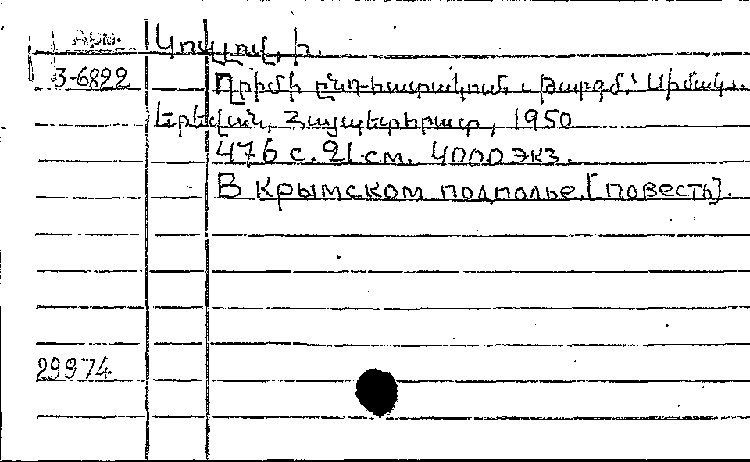 Арм.
Կոզլով, Ի.
3-6822
Ղրիմի ընդհատակում. Թարգմ.՝
Երևան, Հայպետհրատ, 1950
476 с. 21 см. 4000 экз.
В крымском подполье. [повесть].
29974